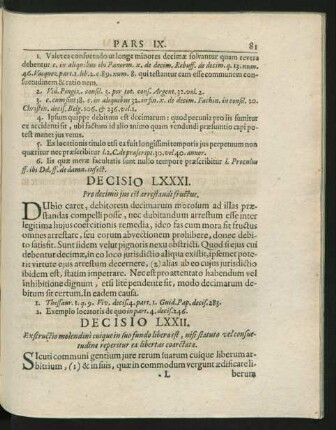 PARS IX. 81
1. Valet ex consuetudo ut longe minores decimæ solvantur quam revera
debentur c. in aliquibus ibi Panorm. x. de decim. Rebuff. de decim. q. 13. num.
46. Vasquez part. 1. lib. 2. c. 89. num. 8. qui testantur eam esse communem con-
suetudinem & ratio nem.
2. Vid. Pingiz. consil. 3. per tot. cons. Argent. 37. vol. 2.
3. c. cum sint 18. c. in aliquibus 32. in fin. x. de decim. Fachin. in consil. 20.
Christin. decis. Belg. 205. & 236. vol. 1.
4. Ipsum quippe debitum est decimarum: quod pecunia pro iis sumitur
ex accidenti fit, ubi factum id alio animo quam vendendi præsumtio capi po-
test manet jus vetus.
5. Ex locationis titulo etsi ea sit longissimi temporis jus perpetuum non
quæritur nec præscribitur l. 2. C. de præscript. 30. vel 40. annor.
6. Iis quæ meræ facultatis sunt nullo tempore præscribitur l. Proculus
ff. ibi Dd. ff. de damn. infect.
DECISIO LXXXI.
Pro decimis jus est arrestandi fructus.
DUbio caret, debitorem decimarum morosum ad illas præ-
standas compelli posse, nec dubitandum arrestum esse inter
legitima hujus coërcitionis remedia, ideo fas cum mora sit fructus
omnes arrestare, seu eorum abvectionem prohibere, donec debi-
to satisfit. Sunt siidem velut pignoris nexu obstricti. Quod si ejus cui
debentur decimæ, in eo loco jurisdictio aliqua exsistit, ipsemet pote-
rit virtute ejus arrestum decernere, (2) alias ab eo cujus jurisdictio
ibidem est, statim impetrare. Nec est pro attentato habendum vel
inhibitione dignum, etsi lite pendente sit, modo decimarum de-
bitum sit certum. In eadem causa.
1. Thessaur. l. 9. 9. Viv. decis. 4. part. 1. Guid. Pap. decis. 285.
2. Exemplo locatoris de quo in part. 4. decis. 246.
DECISIO LXXII.
Exstructio molendini cuique in suo fundo libera est, nisi statuto vel consue-
tudine reperitur ea libertas coarctata.
SIcuti communi gentium jure rerum suarum cuique liberum ar-
bitrium, (1) & in suis, quæ in commodum vergunt ædificare li-
*L liberum